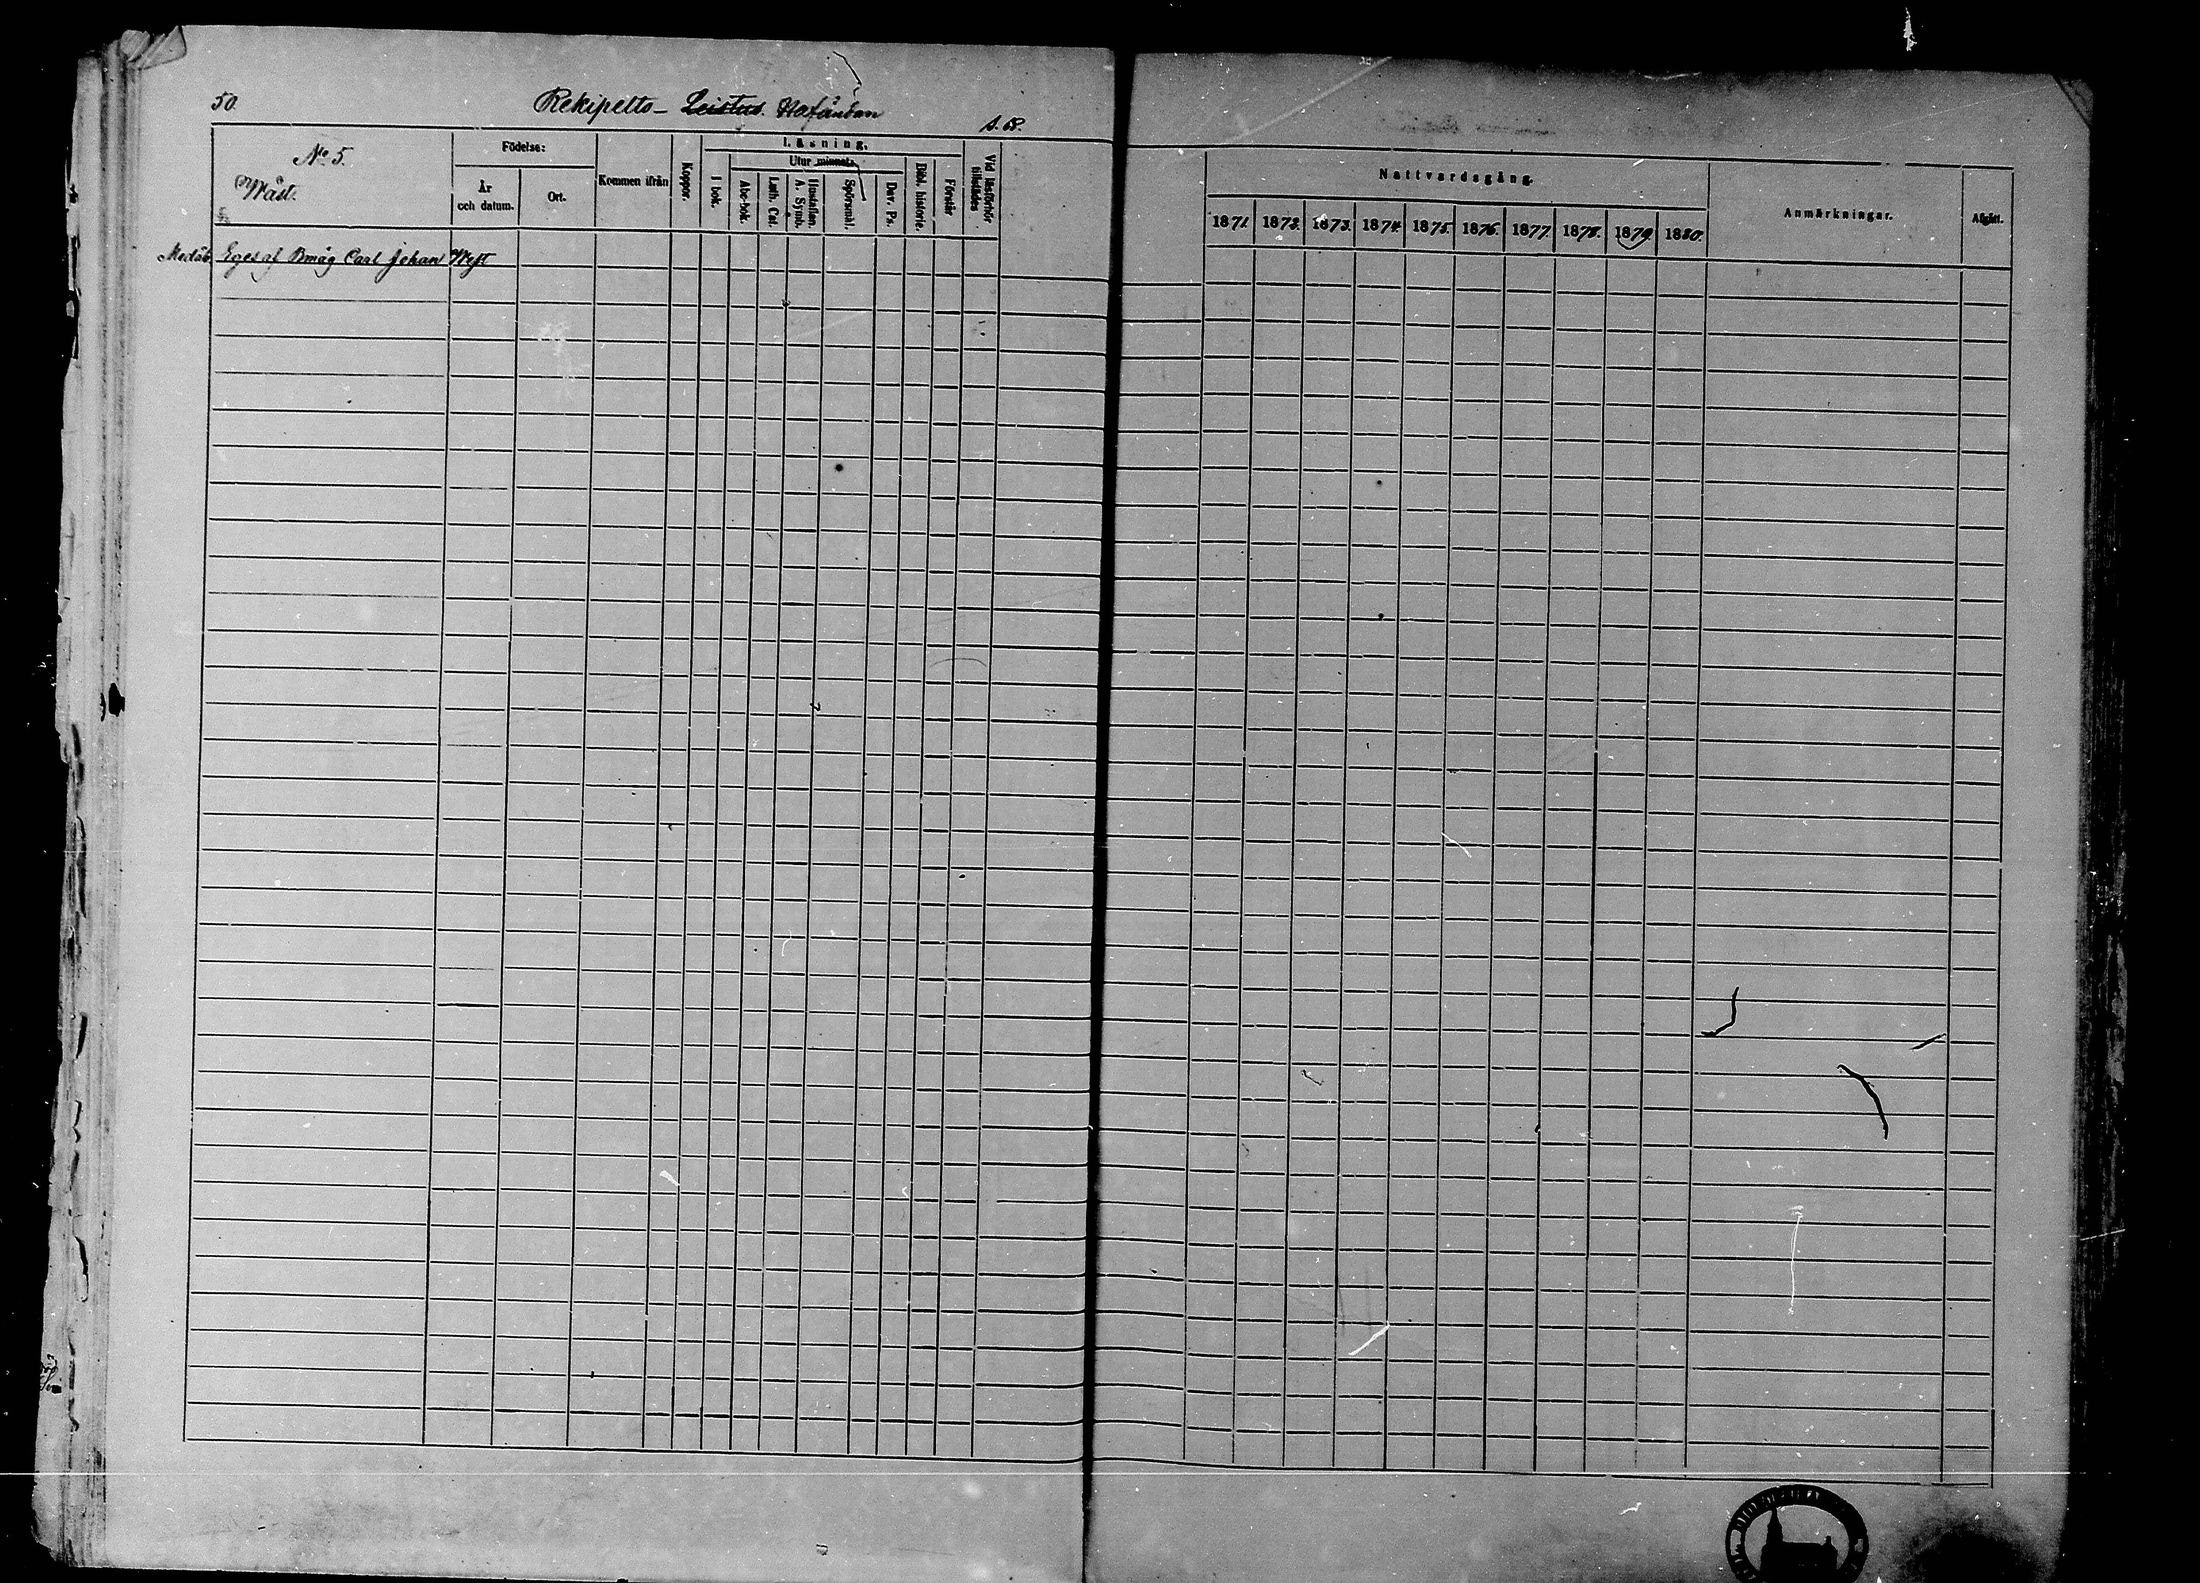 50. Rekipelto- Leistus. Hafåndan
s. 68.
No 5.
Wäst.
Födelse:
År och datum.
Ort.
Kommen ifrån
Koppor.
Läsning.
I bok.
Utur minnet.
Abc-bok.
Luth. Cat.
Hustaflan. A. Symb.
Spörsmål.
Dav. Ps.
Bibl. historie.
Förstår
Vid läsförhör tillstädes
Nattvardsgång.
1871. 1872. 1873. 1874. 1875. 1876. 1877. 1878. 1879. 1880.
Anmärkningar.
Afgått.
Eges af Bmåg Carl Johan West